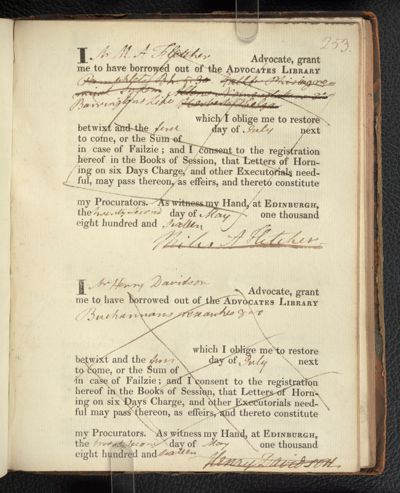 253.
I Mr M. A. Fletcher Advocate, grant
me to have borrowed out of the ADVOCATES LIBRARY
Barringtons
which I oblige me to restore
betwixt and the first day of July next
to come, or the Sum of
in case of Failzie; and I consent to the registration
hereof in the Books of Session, that Letters of Horn-
ing on six Days Charge, and other Executorials need-
ful, may pass thereon, as effeirs, and thereto constitute
my Procurators. As witness my Hand, at EDINBURGH,
the twenty second day of May one thousand
eight hundred and sixteen
Miles A Fletcher
I Mr Henry Davidson Advocate, grant
me to have borrowed out of the ADVOCATES LIBRARY
Buchannans remarks &c
which I oblige me to restore
betwixt and the first day of July next
to come, or the Sum of
in case of Failzie; and I consent to the registration
hereof in the Books of Session, that Letters of Horn-
ing on six Days Charge, and other Executorials need-
ful may pass thereon, as effeirs, and thereto constitute
my Procurators. As witness my Hand, at EDINBURGH,
the twenty second day of May one thousand
eight hundred and sixteen
Henry Davidson.